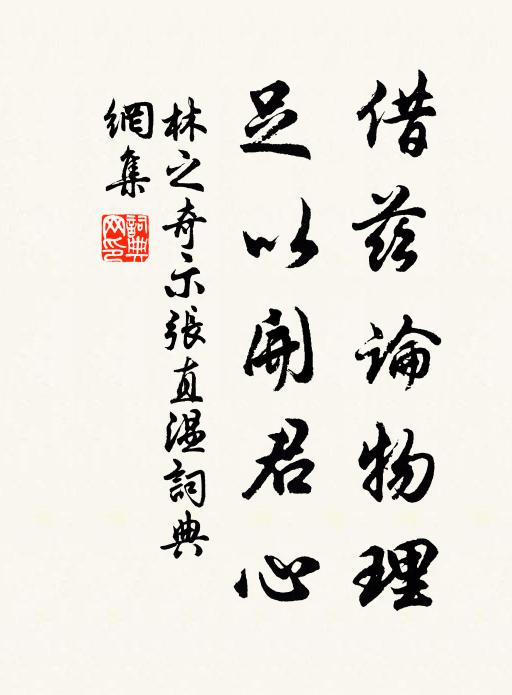 借茲論物理
足以開君心
林之奇示張直温詞典
網集
詞典
网印